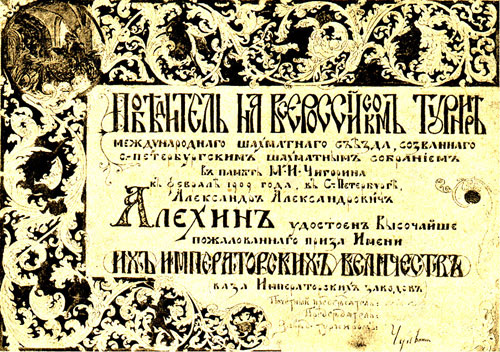 Побѣдитель на Всероссійскомъ Турнирѣ
международнаго шахматнаго съѣзда, созваннаго
С-Петербургскимъ шахматнымъ собраніемъ
въ память М·И·Чигорина
въ февралѣ 1909 года, въ С-Петербургѣ,
Александръ Александровичъ
Алехинъ удостоенъ Высочайше
пожалованнаго приза Имени
ИХЪ ИМПЕРАТОРСКИХЪ ВЕЛИЧЕСТВЪ
ваза Императорскихъ заводовъ
Почетный предсѣдатель:
Предсѣдатель: